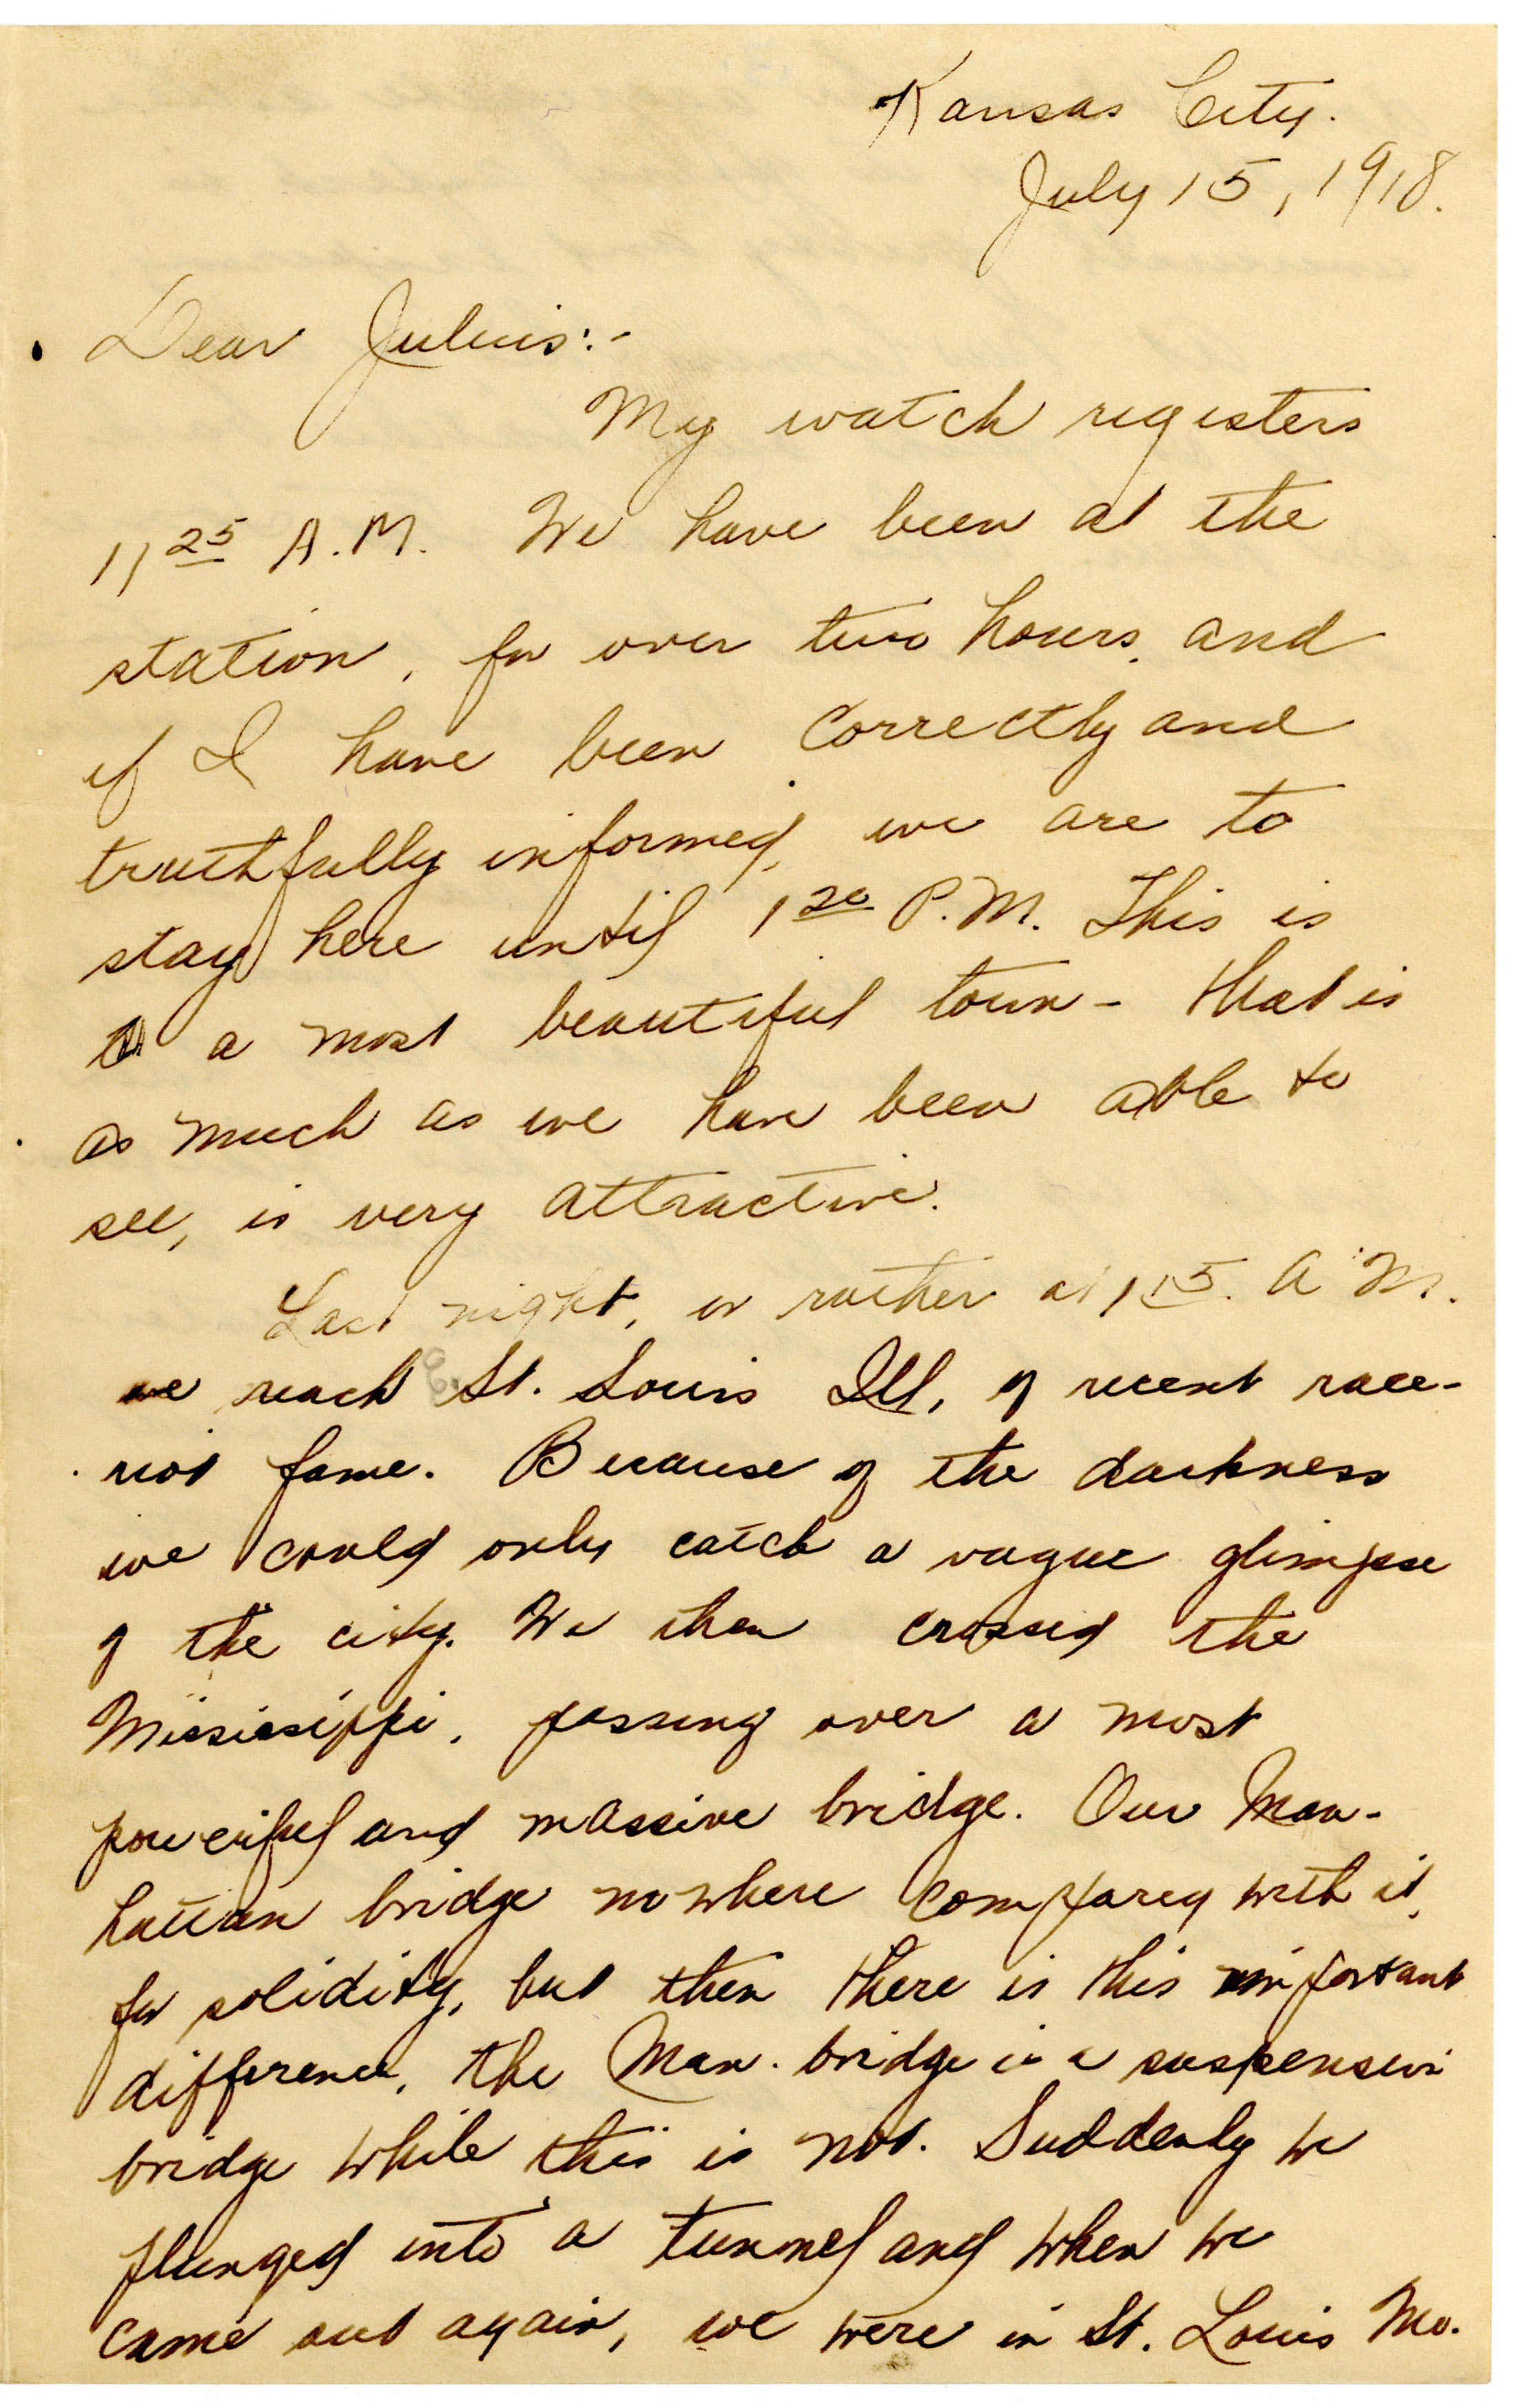 Kansas City.
July 15, 1918.
Dear Julius:-
My watch registers
11 25 A.M. We have been at the
station, for over two hours, and
if I have been correctly and
truthfully informed, we are to
stay here until 1 20 P.M. This is
a most beautiful town - that is
as much as we have been able to
see, is very attractive.
Last night, or rather at 1 15. A.M.
we reach E. St. Louis Ill, of recent race-
riot fame. Because of the darkness
we could only catch a vague glimpse
of the city. We then crossed the
Mississippi, passing over a most
powerful and massive bridge. Our Man-
hattan bridge nowhere compared with it,
for solidity, but then there is this important
difference, the Man. bridge is a suspension
bridge while this is not. Suddenly we
plunged into a tunnel and when we
came out again, we were in St. Louis Mo.